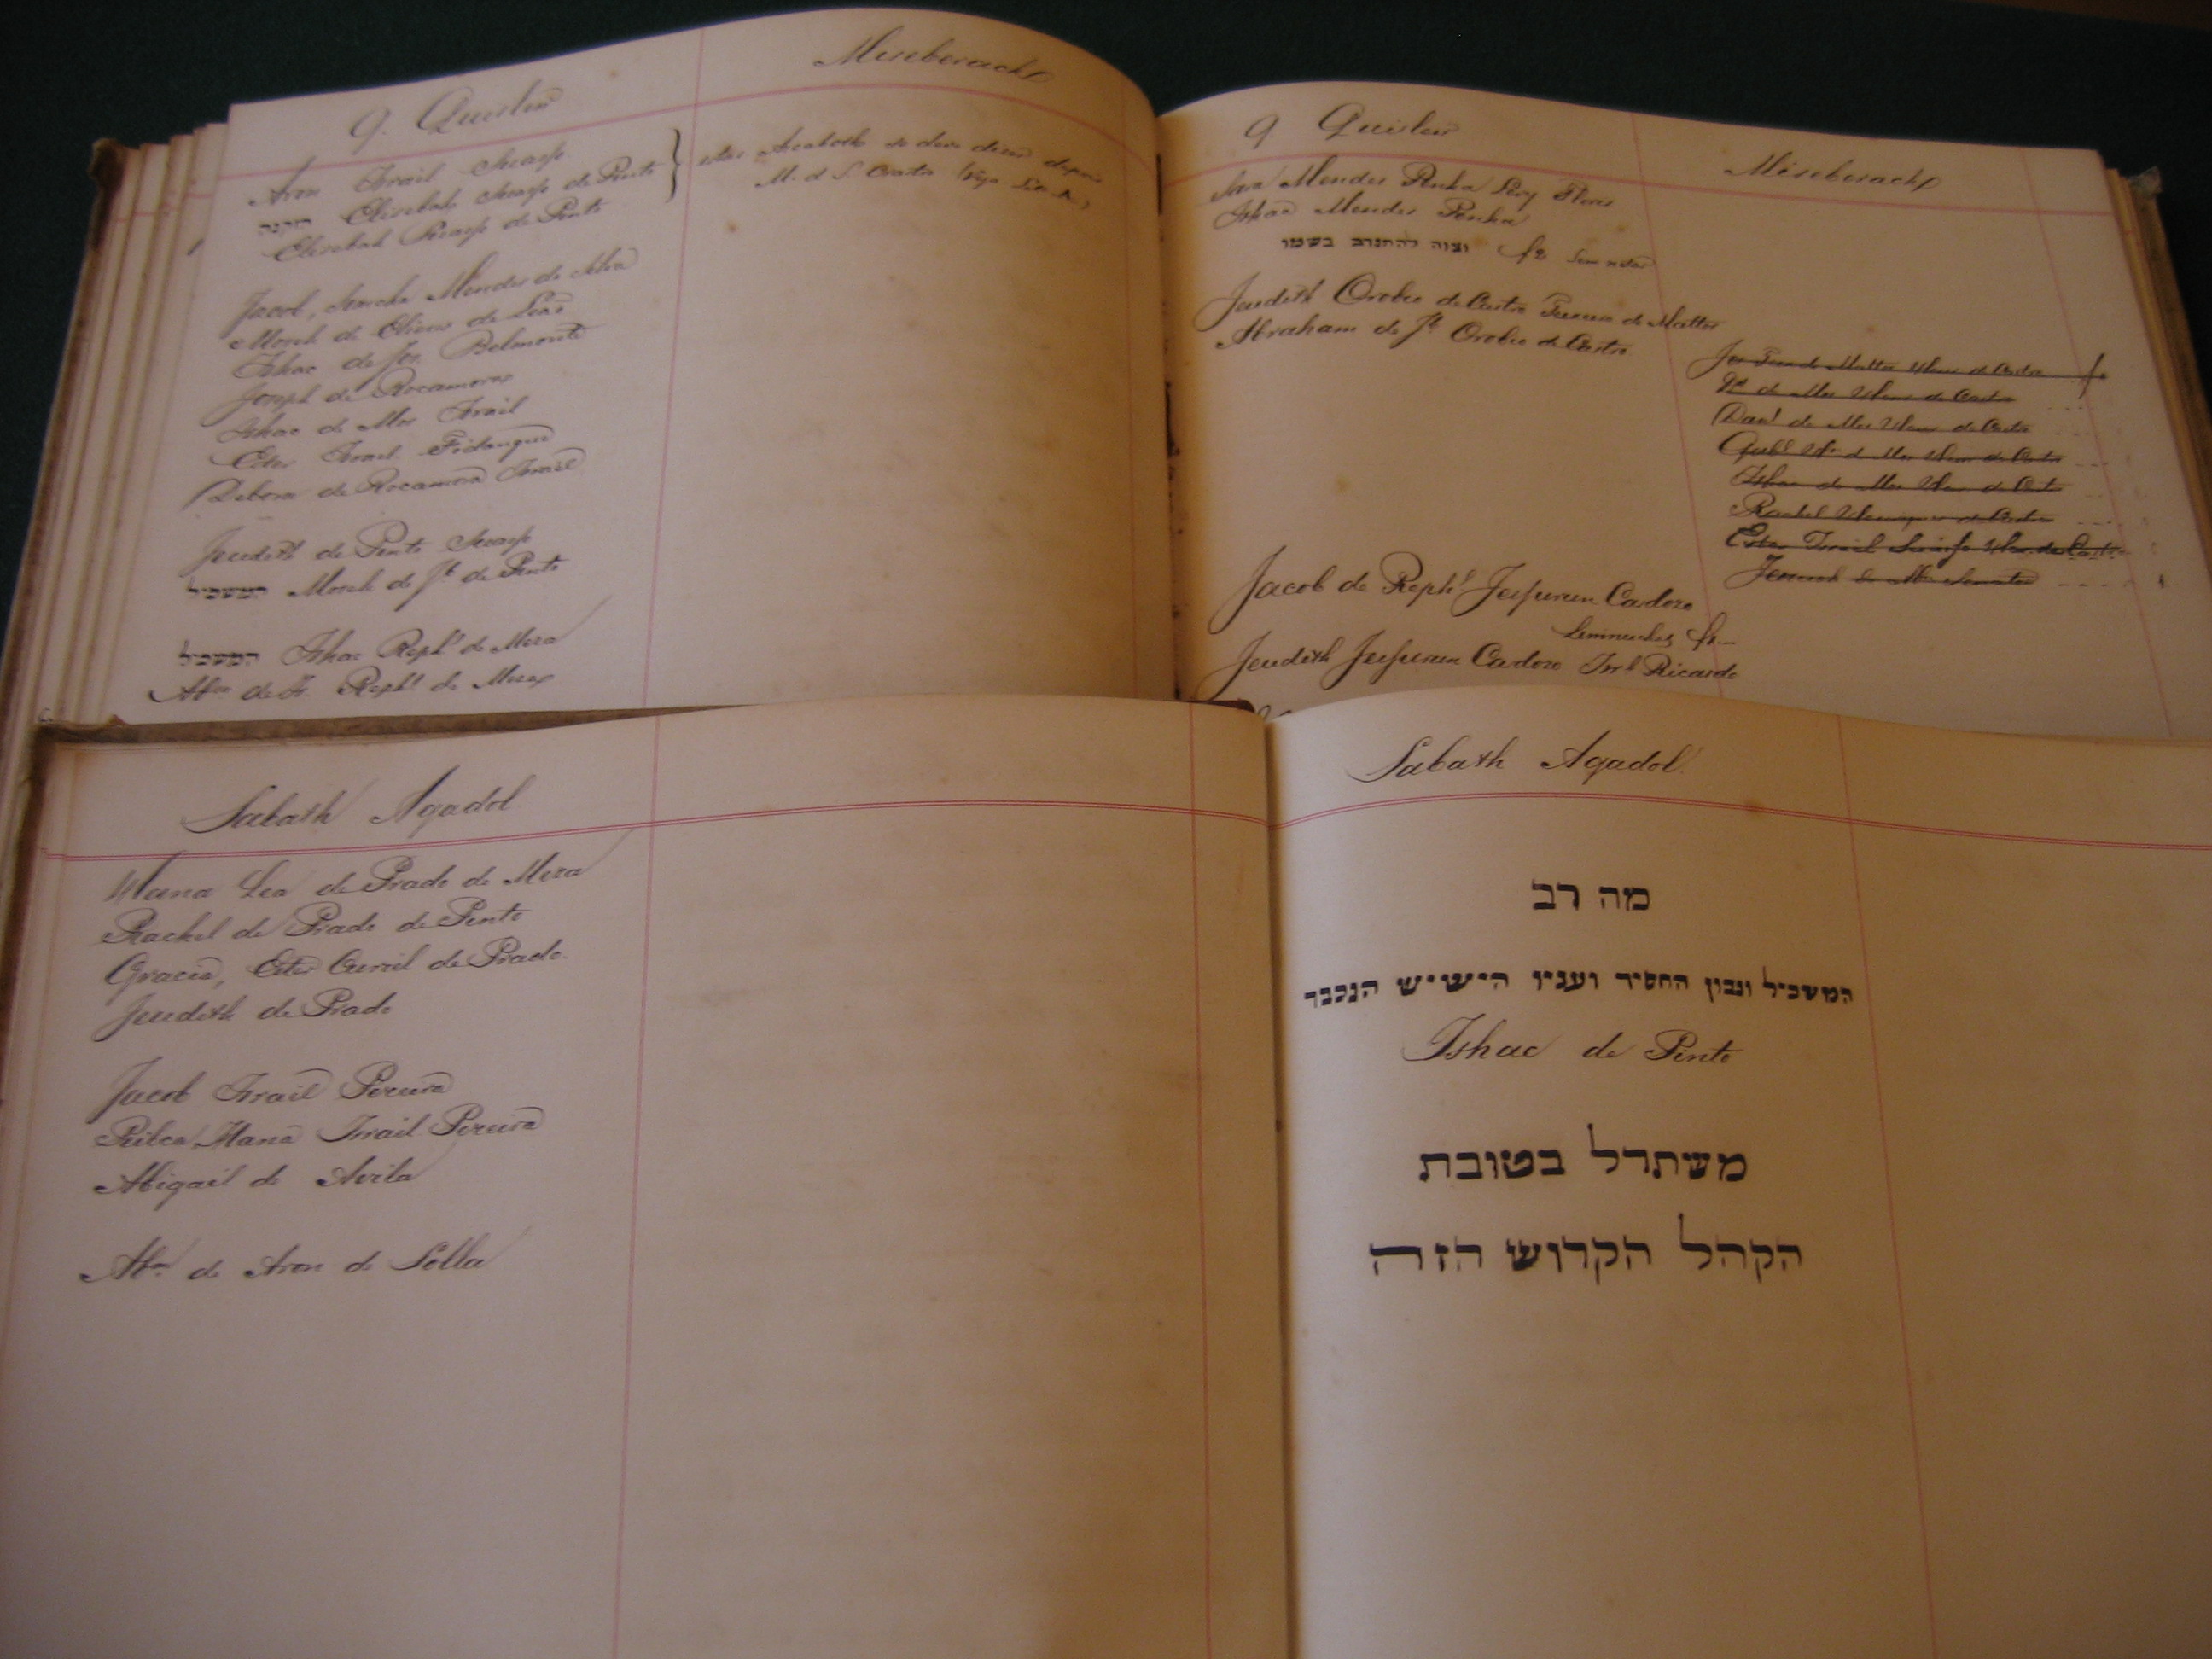 9. Quisleu
Miseberach
Aron Israil Suasso
הזקנה Elisebah Suasso de Pinto
Elisebah Suasso de Pinto
estas Ascaboth se deve dizer depois
M. d S. Castro
Jacob, Simcha Mendes da Silva
Moseh de Elieus de Leaõ
Ishac de Jos. Belmonte
Joseph de Rocamora
Ishac de Mos Israil
Ester Israel Fidanque
Debora de Rocamora Israil
Jeudith de Pinto Suasso
המשכיל Moseh de Jb de Pinto
המשכיל Ishac Rephl de Meza
Abm de Is. Rephl de Meza
9 Quisleu
Miseberach
Sara Mendes Penha Levy Flores
Ishac Mendes Penha
וצוה להתנדב בשמו
Jeudith Orobio de Castro de Mattos
Abraham de Jb Orobio de Castro
de Castro
de Mos de Castro
Danl de Mos de Castro
de Mos de Castro
Ishac de Mos de Castro
Rachel Henriques de Castro
Ester Israil de Castro
Jacob de Rephl Jessurun Cardozo
Jeudith Jessurun Cardozo Isrl Ricardo
Sabath Agadol
Hana Lea de Prado de Meza
Rachel de Prado de Pinto
Gracia, Ester Curiel de Prado.
Jeudith de Prado
Jacob Israil Pereira
Ribca Hana Israil Pereira
Abigail de Avila
Abm de Aron de Solla
Sabath Agadol
מה רב
המשכיל ונבון החסיד ועניו הישיש הנכבד
Ishac de Pinto
משתדל בטובת
הקהל הקדוש הזה